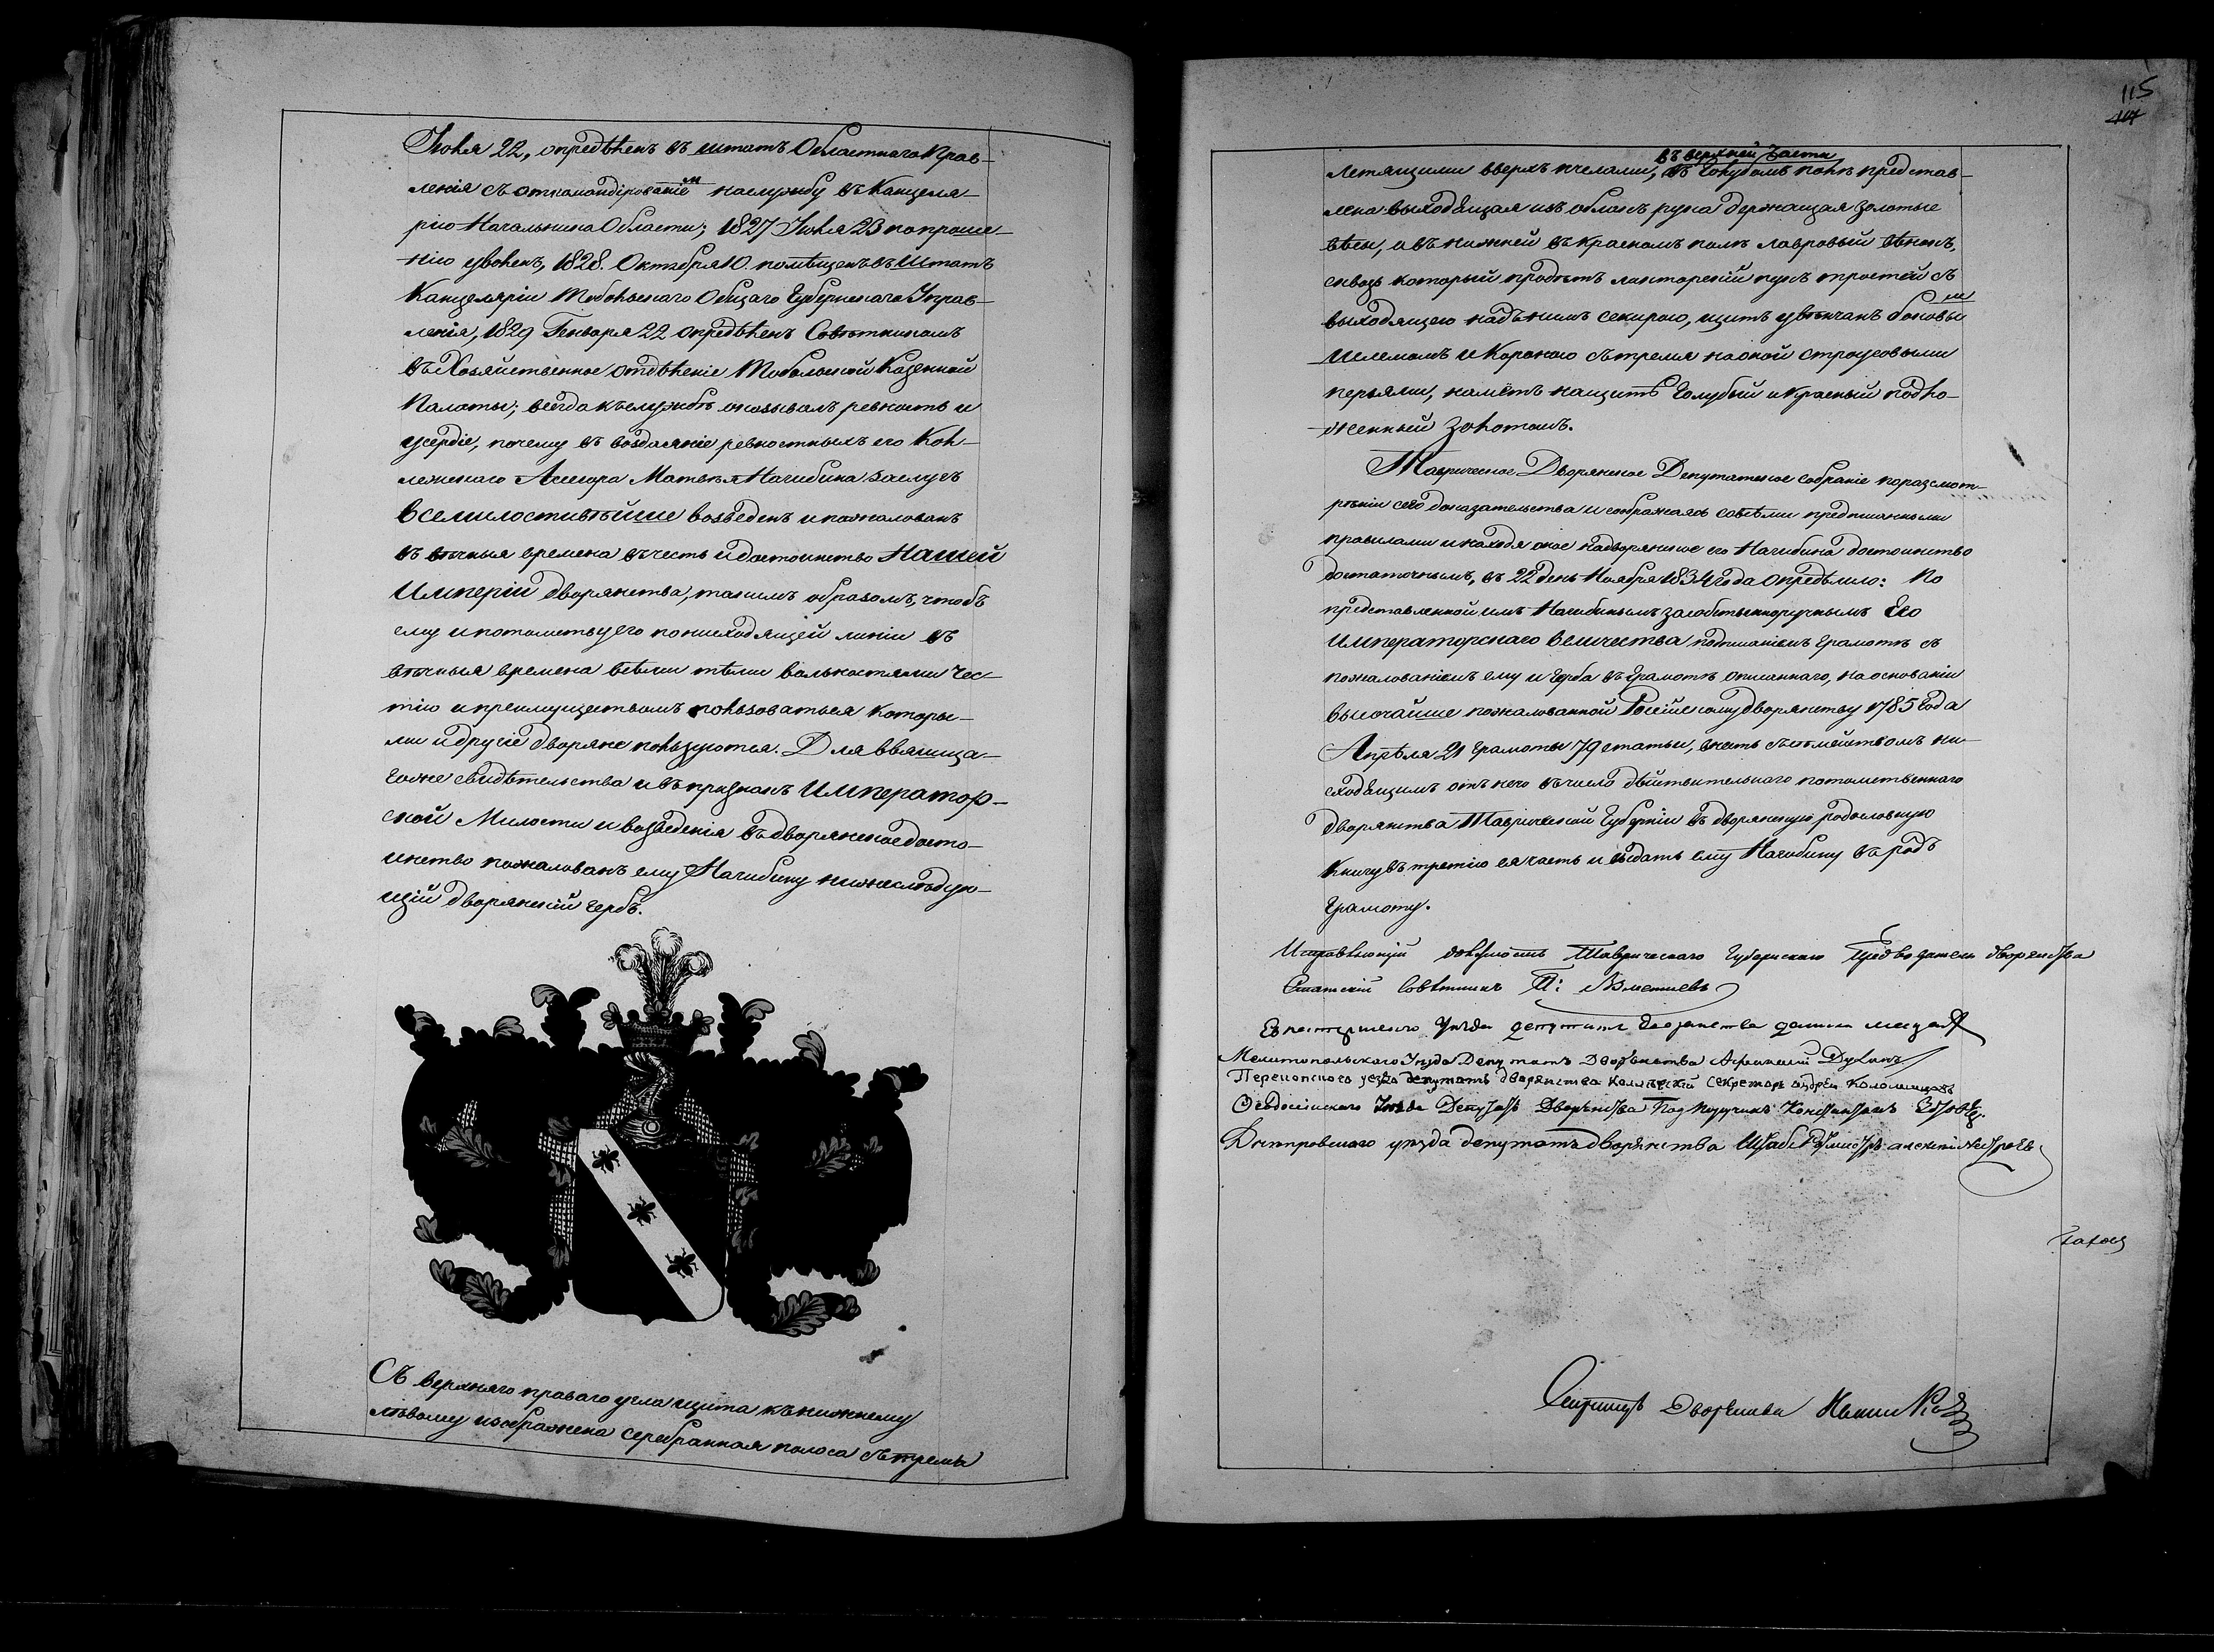 Іюля 22, опредѣленъ въ штатъ Областнаго Прав-
ленія съ откомандированіем на службу въ Канцеля-
рію Начальника Области; 1827 Іюля 23 по проше-
нію уволенъ, 1828. Октября 10. помѣщенъ въ Штатъ
Канцеляріи Тобольскаго Общаго Губернскаго Управ-
ленія, 1829 Генваря 22 опредѣленъ Совѣтникомъ
въ Хозяйственное отдѣленіе Тобольской Казенной
Палаты; всегда къ службѣ оказывалъ ревность и
усердіе, почему въ воздаяніе ревностныхъ его Кол-
лежскаго Асесора Матвѣя Нагибина заслугъ
Всемилостивѣйше возведенъ и пожалованъ
въ вѣчныя времена въ честь и достоинство Нашей
Имперіи дворянства, такимъ образомъ, чтобъ
ему и потомству его по нисходящей линіи въ
вѣчныя времена всѣми тѣми вольностями чес-
тію и преимуществомъ пользоваться которы-
ми и другіе дворяне пользуются. Для ввящща-
гоже свидѣтельства и въ признакъ Император-
ской Милости и возведенія въ дворянское досто-
инство пожалованъ ему Нагибину нижеслѣдую-
щій дворянскій гербъ.
Съ верхняго праваго угла щита къ нижнему
лѣвому изображена серебранная полоса съ тремя
115
въ верхней части
летящими вверхъ пчелами, въ голубомъ полѣ представ-
лена выходящая изъ облакъ рука держащая золотые
вѣсы, а въ нижней въ красномъ полѣ лавровый вѣнокъ,
сквозь который продѣтъ ликторскій пукъ тростей съ
выходящею надъ нимъ секирою, щитъ увѣнчанъ боковым
шлемомъ и Короною съ тремя на оной строусовыми
перьями, намётъ на щитѣ голубый и красный подло-
женный золотомъ.
Таврическое Дворянское Депутатское собраніе по разсмот-
рѣніи сего доказательства и соображаясь со всѣми предписанными
правилами и находя оное на дворянское его Нагибина достоинство
достаточнымъ, въ 22 день Ноября 1834 года опредѣлило: По
представленной имъ Нагибинымъ за собственноручнымъ Его
Императорскаго Величества подписаніемъ грамотѣ съ
пожалованіемъ ему и герба въ грамотѣ описаннаго, на основаніи
высочайше пожалованной Россійскому дворянству 1785 года
Апрѣля 21 грамоты 79 статьи, внесть съ потомствомъ ни-
сходящимъ отъ него въ число дѣйствительнаго потомственнаго
дворянства Таврической Губерніи въ дворянскую родословную
Книгу въ третію ея часть и выдать ему Нагибину въ родъ
грамоту.
Исправляющій должность Таврическаго Губернскаго Предводателя дворянства
Статскій Совѣтникъ
уѣзда депутатъ дворянства
Мелитопольскаго Уѣзда Депутатъ Дворянства
Перекопскаго уезда депутатъ дворянства Коллежскій Секретарь андрей
Ѳеодосійскаго Уѣзда Депутатъ Дворянства Подпоручикъ Константинъ
Днепровскаго уѣзда депутатъ дворянства Штабъ Ротмистръ алексѣй
Секретарь Дворянства